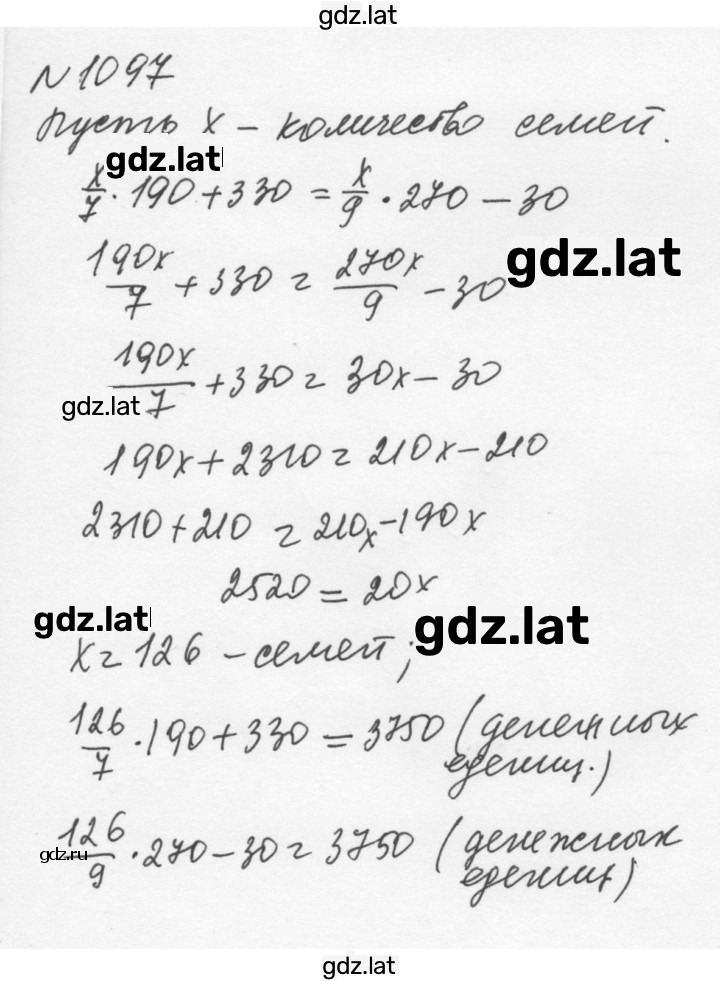 gdz.lat
№1097
Пусть x – количество семей.
gdz.lat
x/7 · 190 + 330 = x/9 · 270 – 30
gdz.lat
190x/7 + 330 = 270x/9 – 30
190x/7 + 330 = 30x – 30
gdz.lat
190x + 2310 = 210x – 210
2310 + 210 = 210x – 190x
2520 = 20x
gdz.lat
gdz.lat
x = 126 – семей;
126/7 · 190 + 330 = 3750 (денежных
едениц.)
126/9 · 270 – 30 = 3750 (денежных
едениц)
gdz.ru
gdz.lat